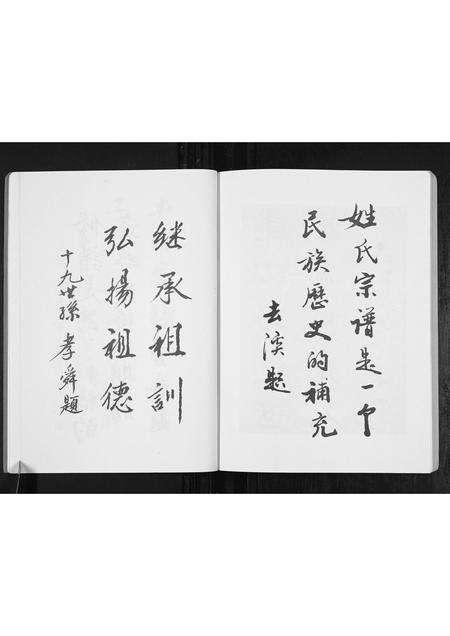 姓氏宗谱是一个
民族歷史的補充
去漢題
继承祖訓
弘揚祖德
十九世孫 孝舜題